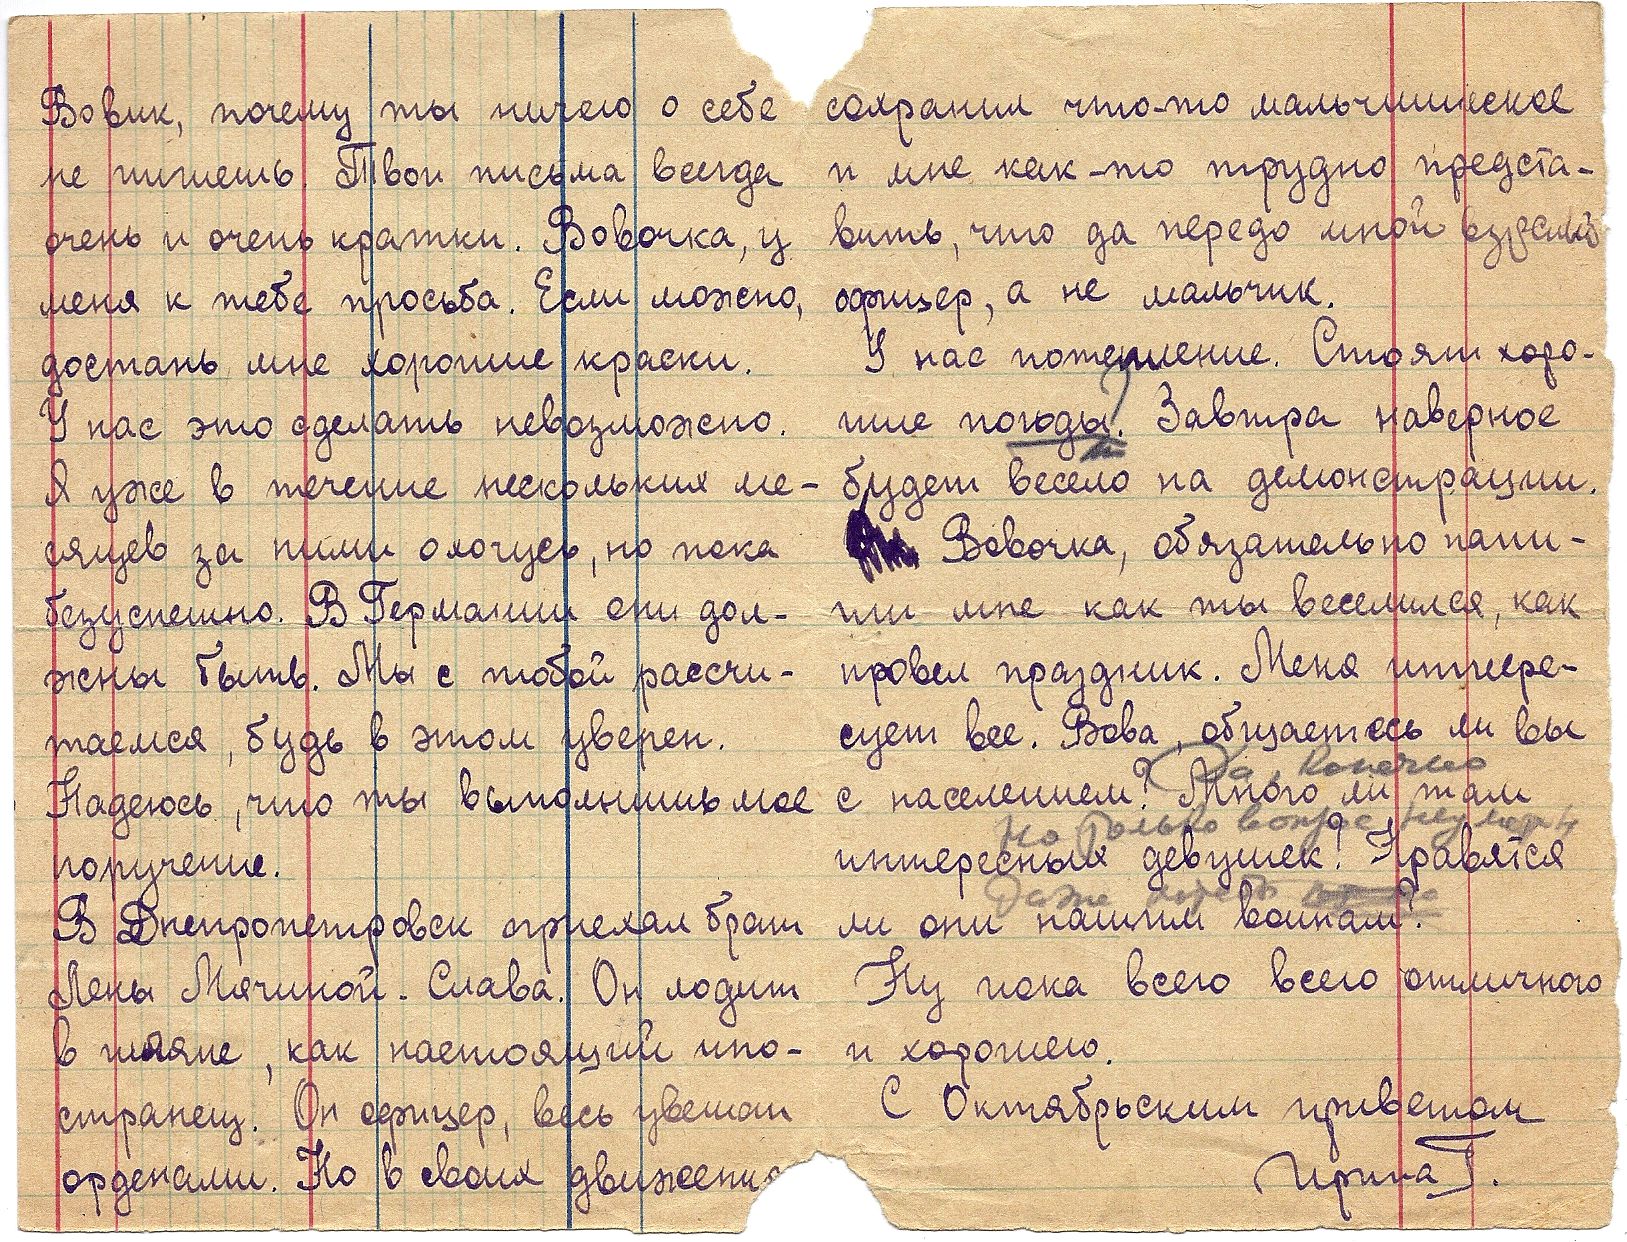 Вовик, почему ты ничего о себе
не пишешь. Твои письма всегда
очень и очень кратки. Вовочка, у
меня к тебе просьба. Если можно,
достань мне хорошие краски.
У нас это сделать невозможно.
Я уже в течение нескольких ме-
сяцев за ними охочусь, но пока
безуспешно. В Германии они дол-
жны быть. Мы с тобой рассчи-
таемся, будь в этом уверен.
Надеюсь, что ты выполнишь мое
поручение.
В Днепропетровск приехал брат
Лены Мячиной - Слава. Он ходит
в шляпе, как настоящий ино-
странец. Он офицер, весь увешан
орденами. Но в своих движения
сохранил что-то мальчишеское
и мне как-то трудно предста-
вить, что да передо мной взрослый
офицер, а не мальчик.
У нас потепление. Стоят хоро-
шие погоды. Завтра наверное
будет весело на демонстрации.
Вовочка, обязательно напи-
ши мне как ты веселился, как
провел праздник. Меня интере-
сует все. Вова, общаетесь ли вы
Да, конечно
с населением? Много ли там
но только вопрос
интересных девушек? Нравятся
даже
ли они нашим воинам?
Ну пока всего всего отличного
и хорошего.
С Октябрьским приветом
Ирина Г.